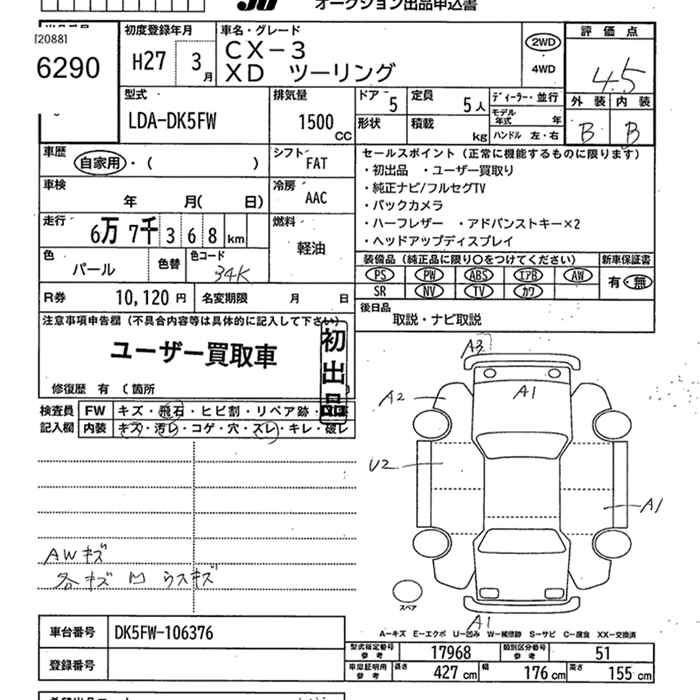 オークション出品申込書
[2088]
6290
初度登録年月
H27 3月
車名・グレード
CX-3
XD ツーリング
2WD
4WD
評価点
4.5
外装 内装
B B
型式
LDA-DK5FW
排気量
1500 CC
ドア 5
定員 5人
形状
積載 kg
ディーラー・並行
モデル年式 年
ハンドル 左・右
車歴 自家用・( )
シフト FAT
車検 年 月( 日)
冷房 AAC
走行 6万 7千 3 6 8 km
燃料 軽油
色 パール
色替
色コード 34K
R券 10,120円
名変期限 月 日
セールスポイント(正常に機能するものに限ります)
・初出品 ・ユーザー買取り
・純正ナビ/フルセグTV
・バックカメラ
・ハーフレザー ・アドバンストキー×2
・ヘッドアップディスプレイ
装備品(純正品に限り〇をつけてください)
新車保証書
PS PW ABS エアB AW
SR NV TV カワ
有・無
後日品
取説・ナビ取説
注意事項申告欄(不具合内容等は具体的に記入して下さい)
ユーザー買取車
初出品
修復歴 有 (箇所
検査員 FW キズ・飛石・ヒビ割・リペア跡・
記入欄 内装 キズ・汚レ・コゲ・穴・ズレ・キレ・破レ
A3
A1
A2
U2
A1
AWキズ
各キズ凹 うスキズ
スペア
A1
A-キズ E-エクボ U-凹み W-補修跡 S-サビ C-腐食 XX-交換済
車台番号 DK5FW-106376
登録番号
型式指定番号 参考 17968
類別区分番号 参考 51
車庫証明用 参考 長さ 427cm 幅 176cm 高さ 155cm